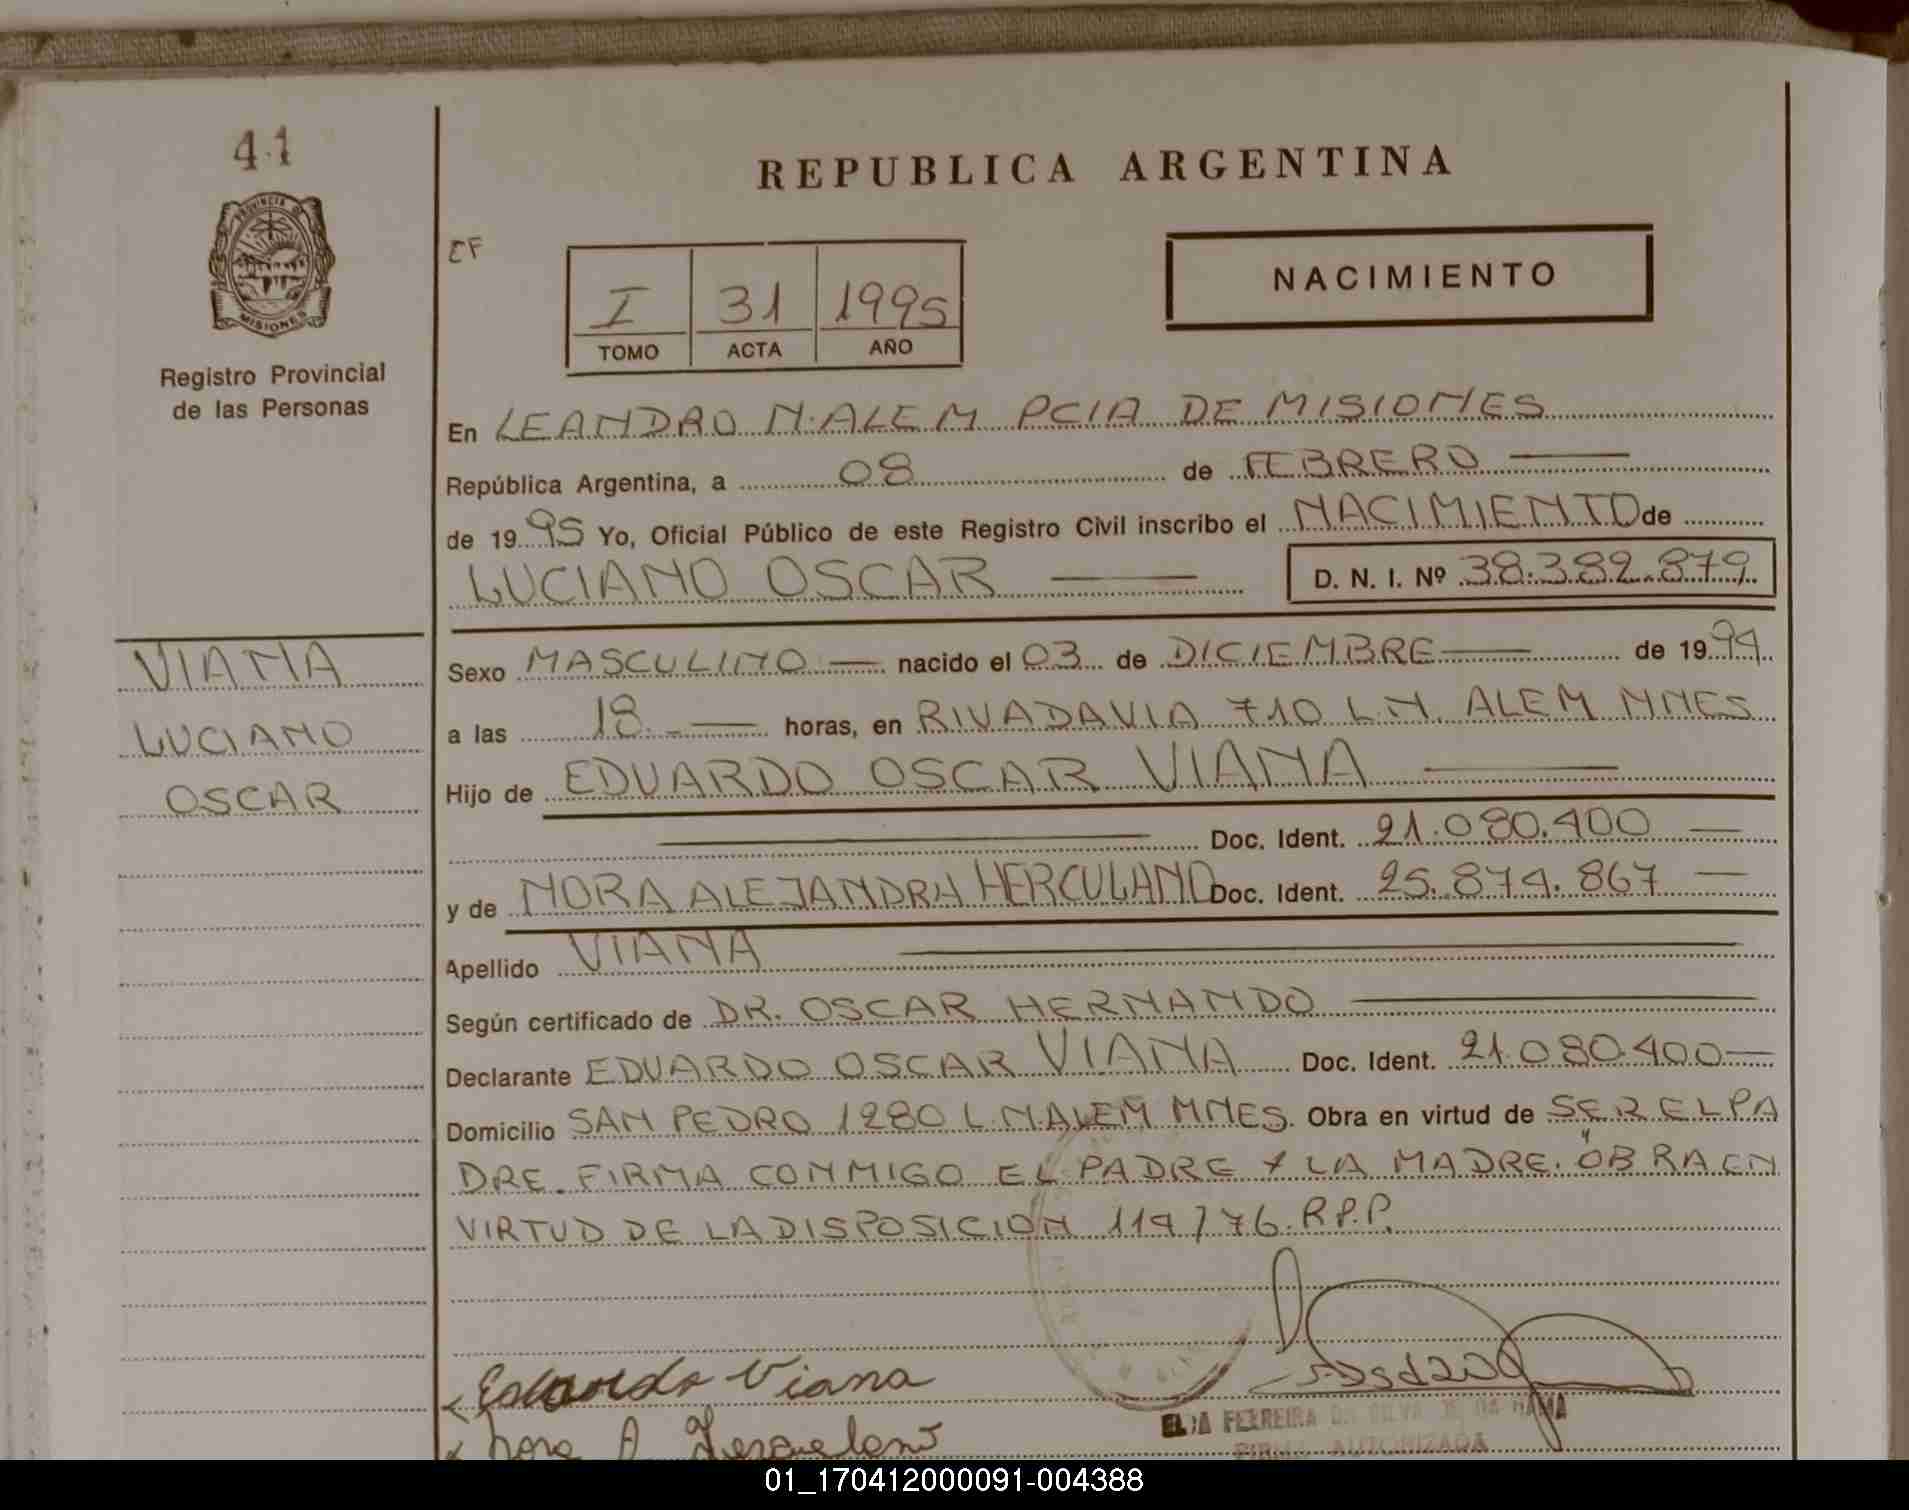 41
PROVINCIA DE
MISIONES
Registro Provincial
de las Personas
VIANA
LUCIANO
OSCAR
REPUBLICA ARGENTINA
CF
I 31 1995
TOMO ACTA AÑO
NACIMIENTO
En LEANDRO N. ALEM PCIA DE MISIONES
República Argentina, a 08 de FEBRERO
de 1995 Yo, Oficial Público de este Registro Civil inscribo el NACIMIENTO de
LUCIANO OSCAR D. N. I. Nº 38.382.879
Sexo MASCULINO nacido el 03 de DICIEMBRE de 1994
a las 18. horas, en RIVADAVIA 710 L.N. ALEM MNES
Hijo de EDUARDO OSCAR VIANA
Doc. Ident. 21.080.400
y de NORA ALEJANDRA HERCULANO Doc. Ident. 25.874.867
Apellido VIANA
Según certificado de DR. OSCAR HERNANDO
Declarante EDUARDO OSCAR VIANA Doc. Ident. 21.080.400
Domicilio SAN PEDRO 1280 L.N.ALEM MNES. Obra en virtud de SER EL PA
DRE. FIRMA CONMIGO EL PADRE Y LA MADRE. "OBRA EN
VIRTUD DE LA DISPOSICION 114/76. R.P.P.
Eduardo Viana
Nora A Herculano
FERREIRA DA SILVA DE DA
FIRMA AUTORIZADA
01_170412000091-004388